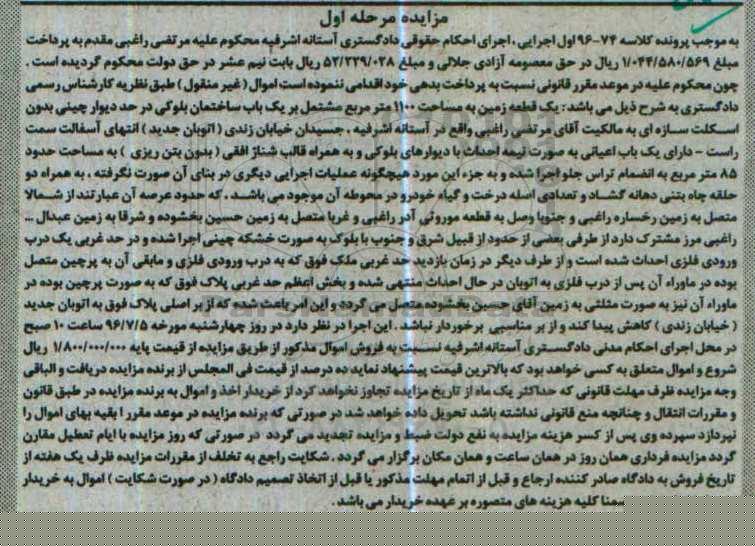 مزایده مرحله اول
به موجب پرونده کلاسه ۷۴-۹۶ اول اجرایی ، اجرای احکام حقوقی دادگستری آستانه اشرفیه محکوم علیه مرتضی راغبی مقدم به پرداخت
مبلغ ۱/۰۴۴/۵۸۰/۵۶۹ ریال در حق معصومه آزادی جلالی و مبلغ ۵۲/۲۲۹/۰۲۸ ریال بابت نیم عشر در حق دولت محکوم گردیده است .
چون محکوم علیه در موعد مقرر قانونی نسبت به پرداخت بدهی خود اقدامی ننموده است اموال ( غیر منقول ) طبق نظریه کارشناس رسمی
دادگستری به شرح ذیل می باشد : یک قطعه زمین به مساحت ۱۱۰۰ متر مربع مشتمل بر یک باب ساختمان بلوکی در حد دیوار چینی بدون
اسکلت سازه ای به مالکیت آقای مرتضی راغبی واقع در آستانه اشرفیه ، جسیدان خیابان زندی ( اتوبان جدید ) انتهای آسفالت سمت
راست - دارای یک باب اعیانی به صورت نیمه احداث با دیوارهای بلوکی و به همراه قالب شناژ افقی ( بدون بتن ریزی ) به مساحت حدود
۸۵ متر مربع به انضمام تراس جلو اجرا شده و به جزء این مورد هیچگونه عملیات اجرایی دیگری در بنای آن صورت نگرفته ، به همراه دو
حلقه چاه بتنی دهانه گشاد و تعدادی اصله درخت و گیاه خودرو در محوطه آن موجود می باشد . که حدود عرصه آن عبارتند از شمالا
متصل به زمین رخساره راغبی و جنوبا وصل به قطعه موروثی آذر راغبی و غربا متصل به زمین حسین بخشوده و شرقا به زمین عبدال ...
راغبی مرز مشترک دارد از طرفی بعضی از حدود از قبیل شرق و جنوب با بلوک به صورت خشکه چینی اجرا شده و در حد غربی یک درب
ورودی فلزی احداث شده است و از طرف دیگر در زمان بازدید حد غربی ملک فوق که به درب ورودی فلزی و مابقی آن به پرچین متصل
بوده در ماوراء آن پس از درب فلزی به اتوبان در حال احداث منتهی شده و بخش اعظم حد غربی پلاک فوق که به صورت پرچین بوده در
ماوراء آن نیز به صورت مثلثی به زمین آقای حسین بخشوده متصل می گردد و این امر باعث شده که از بر اصلی پلاک فوق به اتوبان جدید
( خیابان زندی ) کاهش پیدا کند و از بر مناسبی برخوردار نباشد . این اجرا در نظر دارد در روز چهارشنبه مورخه ۹۶/۷/۵ ساعت ۱۰ صبح
در محل اجرای احکام مدنی دادگستری آستانه اشرفیه نسبت به فروش اموال مذکور از طریق مزایده از قیمت پایه ۱/۸۰۰/۰۰۰/۰۰۰ ریال
شروع و اموال متعلق به کسی خواهد بود که بالاترین قیمت پیشنهاد نماید ده درصد از قیمت فی المجلس از برنده مزایده دریافت و الباقی
وجه مزایده ظرف مهلت قانونی که حداکثر یک ماه از تاریخ مزایده تجاوز نخواهد کرد از خریدار اخذ و اموال به برنده مزایده در طبق قانون
و مقررات انتقال و چنانچه منع قانونی نداشته باشد تحویل داده خواهد شد در صورتی که برنده مزایده در موعد مقرر ا بقیه بهای اموال را
نپردازد سپرده وی پس از کسر هزینه مزایده به نفع دولت ضبط و مزایده تجدید می گردد در صورتی که روز مزایده با ایام تعطیل مقارن
گردد مزایده فردای همان روز در همان ساعت و همان مکان برگزار می گردد . شکایت راجع به تخلف از مقررات مزایده ظرف یک هفته از
تاریخ فروش به دادگاه صادر کننده ارجاع و قبل از اتمام مهلت مذکور یا قبل از اتخاذ تصمیم دادگاه ( در صورت شکایت ) اموال به خریدار
کلیه هزینه های متصوره بر عهده خریدار می باشد .